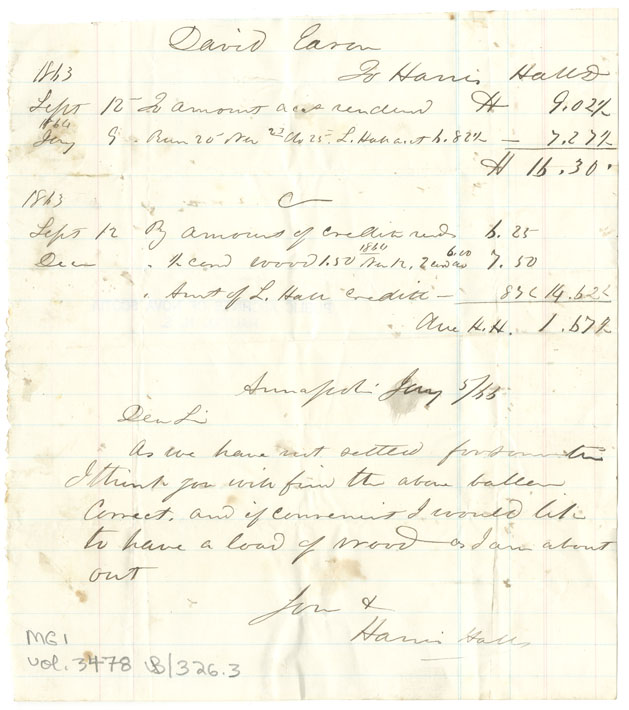 David Eason
1863 To Harris Hall Dr
Sept 12 To amount acct rendered 9.02½
1864
Jany 9 . 25 Nov 22 25. L. Hall acct 6.82½ — 7.27½
16.30
1863 Cr
Sept 12 By amount of credit 6.25
Decr . ½ cord wood 1.50 1864 2 cord do 6.00 7.50
. Amt of L. Hall credit — 87½ 14.62½
Due H.H. 1.67½
Annapolis Jany 5/65
Dear Sir
As we have not settled for some time
I think you will find the above ballen
Correct. and if convenient I would like
to have a load of wood as I am about
out
Harris Hall
MG1
vol. 3478 B/326.3